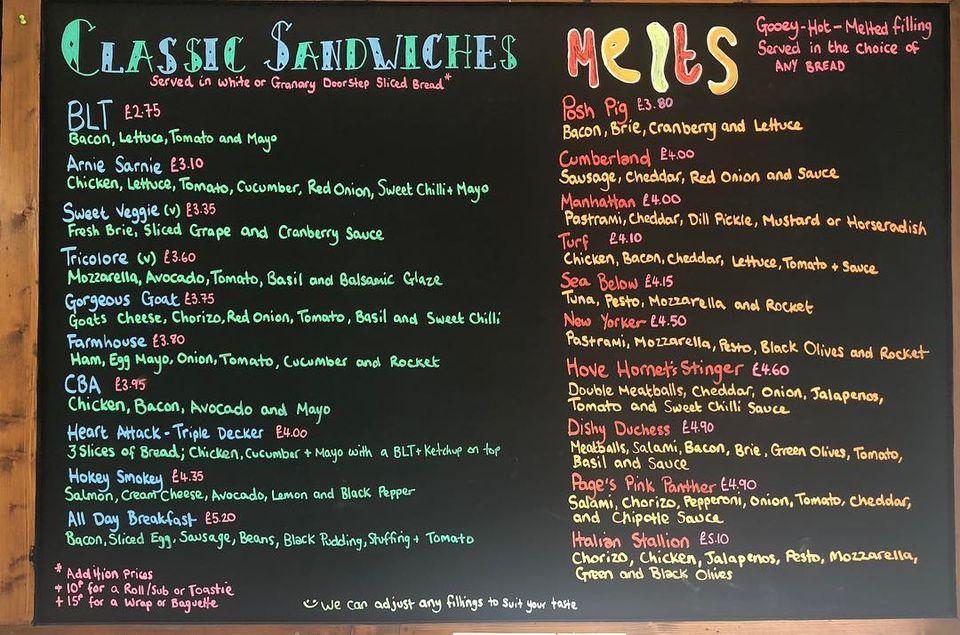 Classic Sandwiches
Served in White or Granary Doorstep Sliced Bread*
BLT £2.75
Bacon, Lettuce, Tomato and Mayo
Arnie Sarnie £3.10
Chicken, Lettuce, Tomato, Cucumber, Red Onion, Sweet Chilli + Mayo
Sweet Veggie (v) £3.35
Fresh Brie, Sliced Grape and Cranberry Sauce
Tricolore (v) £3.60
Mozzarella, Avocado, Tomato, Basil and Balsamic Glaze
Gorgeous Goat £3.75
Goats Cheese, Chorizo, Red Onion, Tomato, Basil and Sweet Chilli
Farmhouse £3.80
Ham, Egg Mayo, Onion, Tomato, Cucumber and Rocket
CBA £3.95
Chicken, Bacon, Avocado and Mayo
Heart Attack - Triple Decker £4.00
3 Slices of Bread; Chicken, Cucumber + Mayo with a BLT + Ketchup on top
Hokey Smokey £4.35
Salmon, Cream Cheese, Avocado, Lemon and Black Pepper
All Day Breakfast £5.20
Bacon, Sliced Egg, Sausage, Beans, Black Pudding, Stuffing + Tomato
* Addition Prices
+ 10p for a Roll/Sub or Toastie
+ 15p for a Wrap or Baguette
Melts
Gooey-Hot-Melted filling
Served in the choice of
ANY BREAD
Posh Pig £3.80
Bacon, Brie, Cranberry and Lettuce
Cumberland £4.00
Sausage, Cheddar, Red Onion and Sauce
Manhattan £4.00
Pastrami, Cheddar, Dill Pickle, Mustard or Horseradish
Turf £4.10
Chicken, Bacon, Cheddar, Lettuce, Tomato + Sauce
Sea Below £4.15
Tuna, Pesto, Mozzarella and Rocket
New Yorker £4.50
Pastrami, Mozzarella, Pesto, Black Olives and Rocket
Hove Hornet's Stinger £4.60
Double Meatballs, Cheddar, Onion, Jalapenos,
Tomato and Sweet Chilli Sauce
Dishy Duchess £4.90
Meatballs, Salami, Bacon, Brie, Green Olives, Tomato,
Basil and Sauce
Page's Pink Panther £4.90
Salami, Chorizo, Pepperoni, Onion, Tomato, Cheddar,
and Chipotle Sauce
Italian Stallion £5.10
Chorizo, Chicken, Jalapenos, Pesto, Mozzarella,
Green and Black Olives
We can adjust any fillings to suit your taste